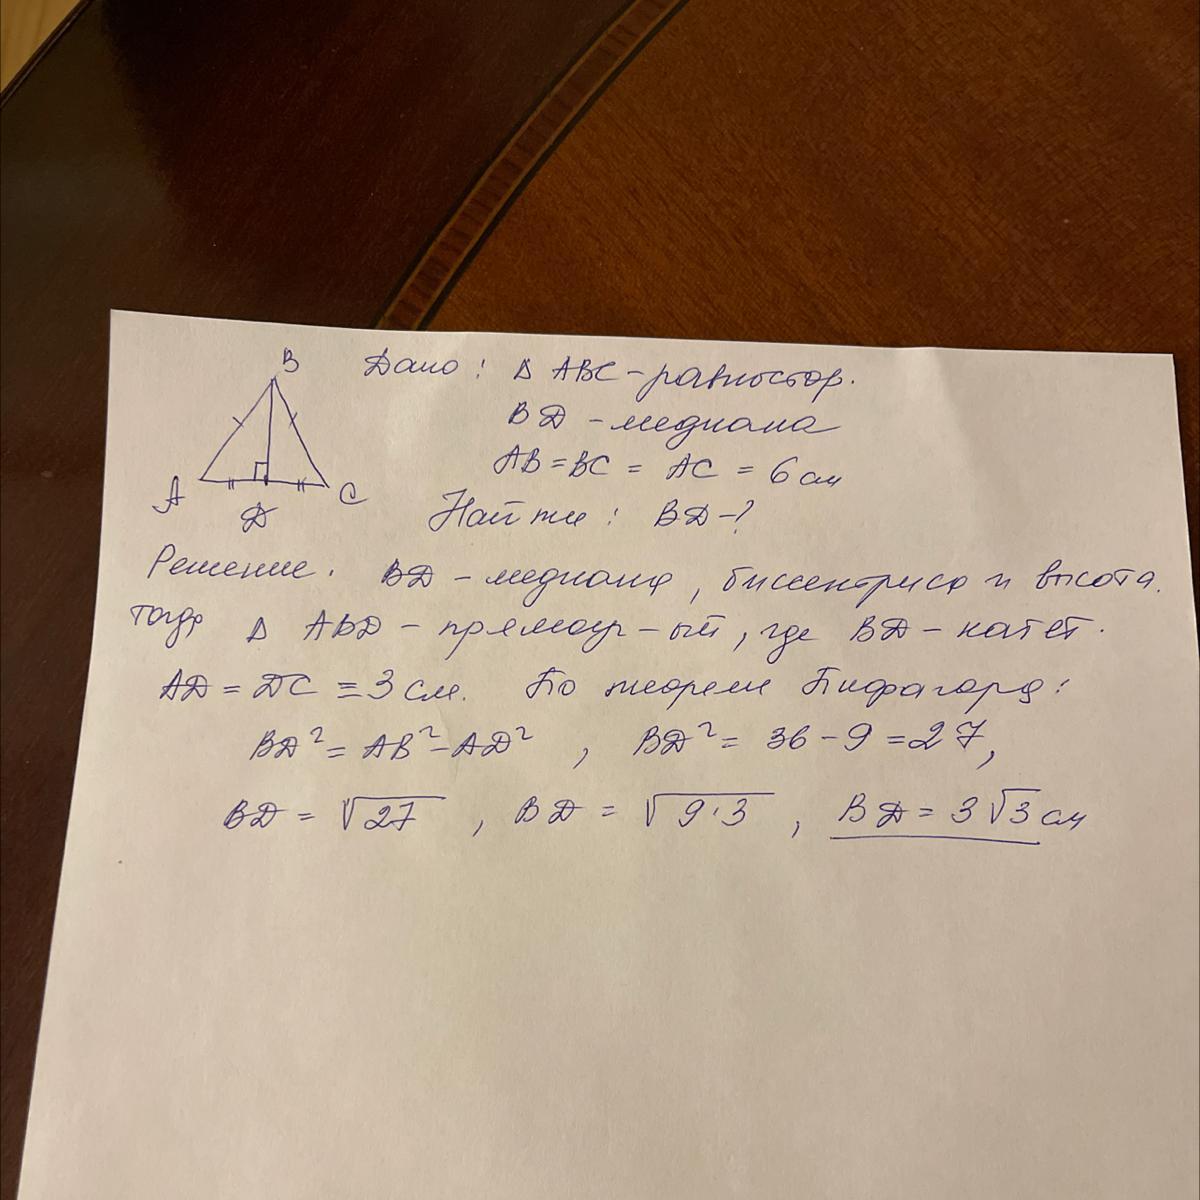 B
A
C
D
Дано: Δ ABC - равностор.
BD - медиана
AB = BC = AC = 6 см
Найти: BD - ?
Решение. BD - медиана, биссектриса и высота.
тогда Δ ABD - прямоуг-ый, где BD - катет.
AD = DC = 3 см. По теореме Пифагора:
BD² = AB² - AD², BD² = 36 - 9 = 27,
BD = √27, BD = √9·3, BD = 3√3 см